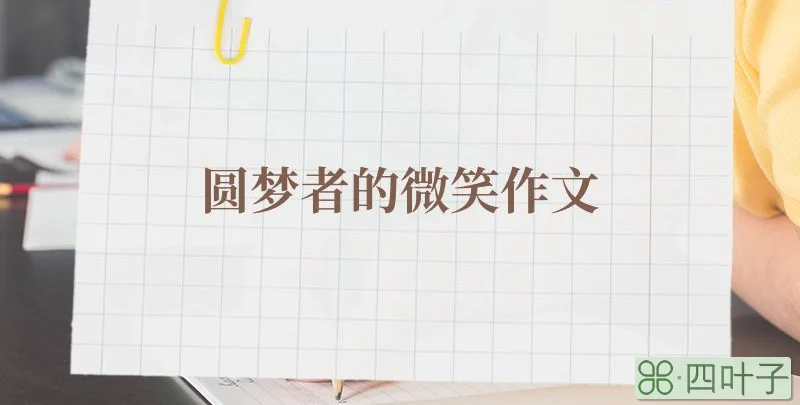 圆梦者的微笑作文
四叶子